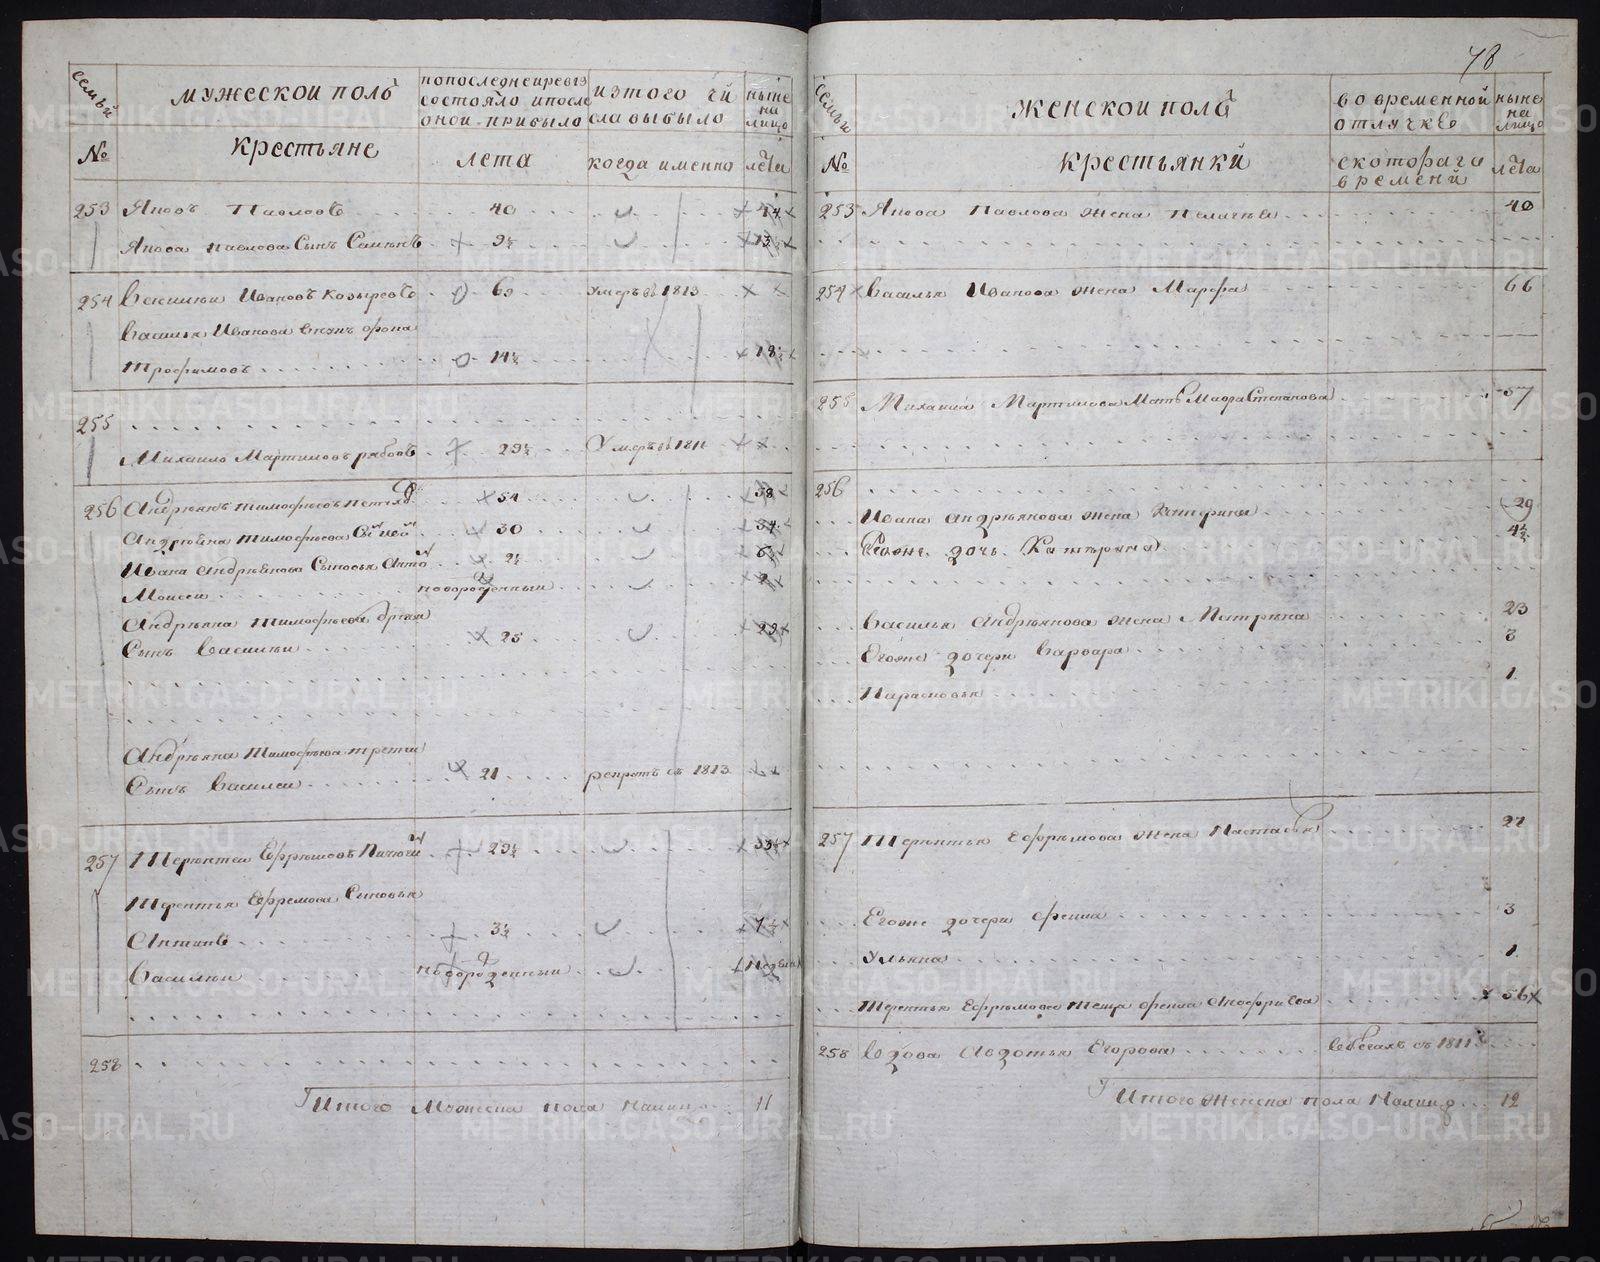 78
семьи
мужеской полъ
по последней ревиз
состояло и после
оной прибыло
из того чи
сла выбыло
ныне
на
лицо
№
крестьяне
лета
когда именно
лета
253 Яковъ Павловъ 40
Якова Павлова Сынъ 9½ 13½
254 Василии Ивановъ Козыревъ 60 умеръ въ 1813
Василья Иванова
Трофимовъ 14½ 18½
255
Михаило Мартиновъ рябовъ 29½ Умеръ въ 1811
256 Андреянъ Тимофеевъ 54 58
Андреяна Тимофеева 30 34
Ивана Андреянова Сыновья 2½ 6½
Моисеи новорожденныи
Андреяна Тимофеева другой
Сынъ Василии 25 29
Андреяна Тимофеева третии
Сынъ Василеи 21 рекрутъ съ 1813
257 Терентеи Ефремовъ Пичюгин 29½ 33½
Терентья Ефремова Сыновья
Антипъ 3½ 7½
Василии новорожденныи
258
Итого Мужеска пола налицо 11
семьи
женской полъ
во временной
отлучке
ныне
на
лицо
№
крестьянки
с котораго
времени
лета
253 Якова Павлова жена Пелагия 40
254 Василья Иванова жена Марфа 66
255 Михаила Мартинова Мать Мавра Степанова 57
256
Ивана Андреянова жена 29
Ево же дочь Катерина 4½
Василья Андреянова жена Матрена 23
Его же дочери Варвара 3
Парасковья 1
257 Терентья Ефремова жена Настасья 27
Его же дочери 3
Ульяна 1
Терентья Ефремова теща 56
258 Вдова Авдотья Егорова в бегахъ съ 1811
Итого женска пола Налицо 12
METRIKI.GASO-URAL.RU